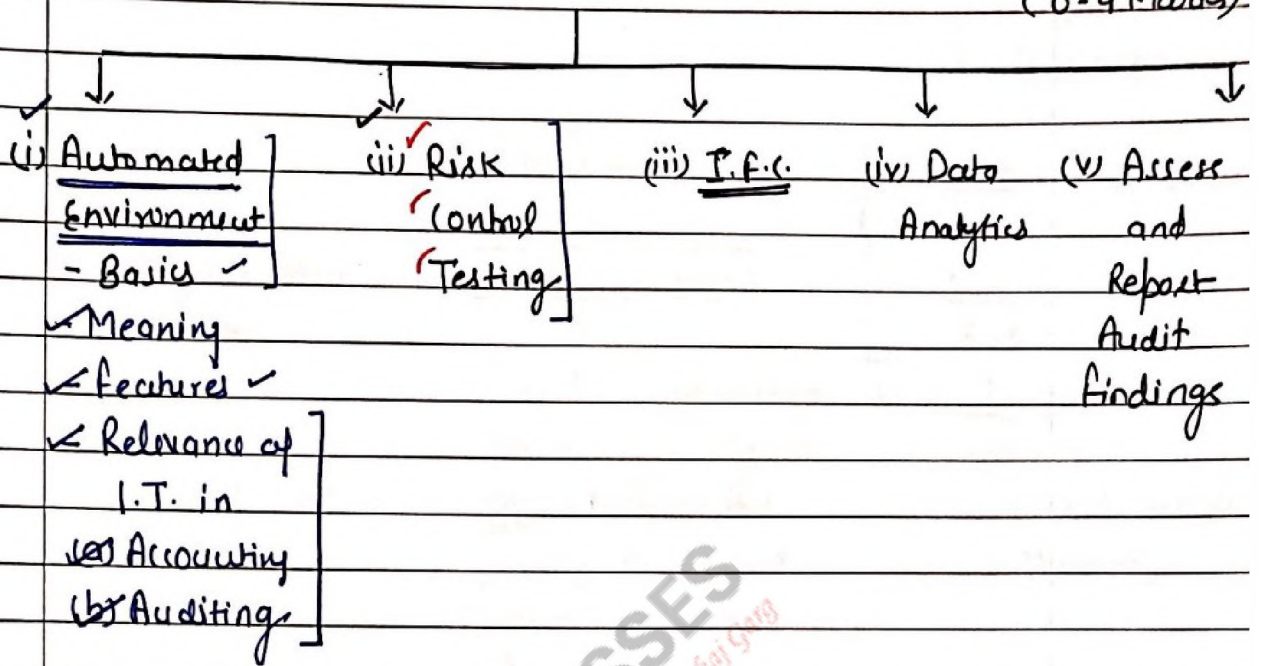 (i) Automated
Environment
- Basics
Meaning
features
Relevance of
I.T. in
(a) Accounting
(b) Auditing
(ii) Risk
Control
Testing
(iii) I.F.C.
(iv) Data
Analytics
(v) Assess
and
Report
Audit
findings
SSES